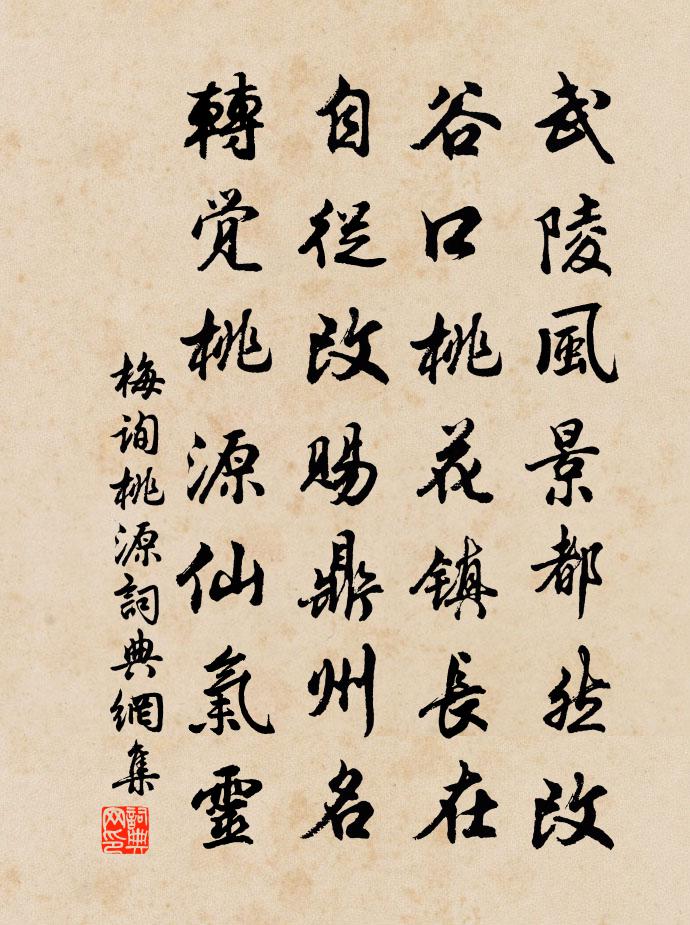 武陵風景都然改
谷口桃花鎮長在
自從改賜鼎州名
轉覺桃源仙氣靈
梅詢桃源詞典網集
詞典网印